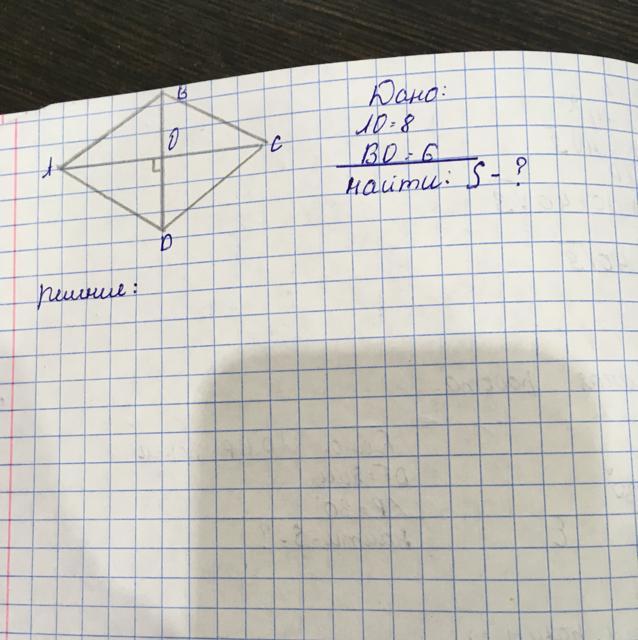 B
O
A
C
D
Дано:
AO = 8
BO = 6
найти: S - ?
решение: